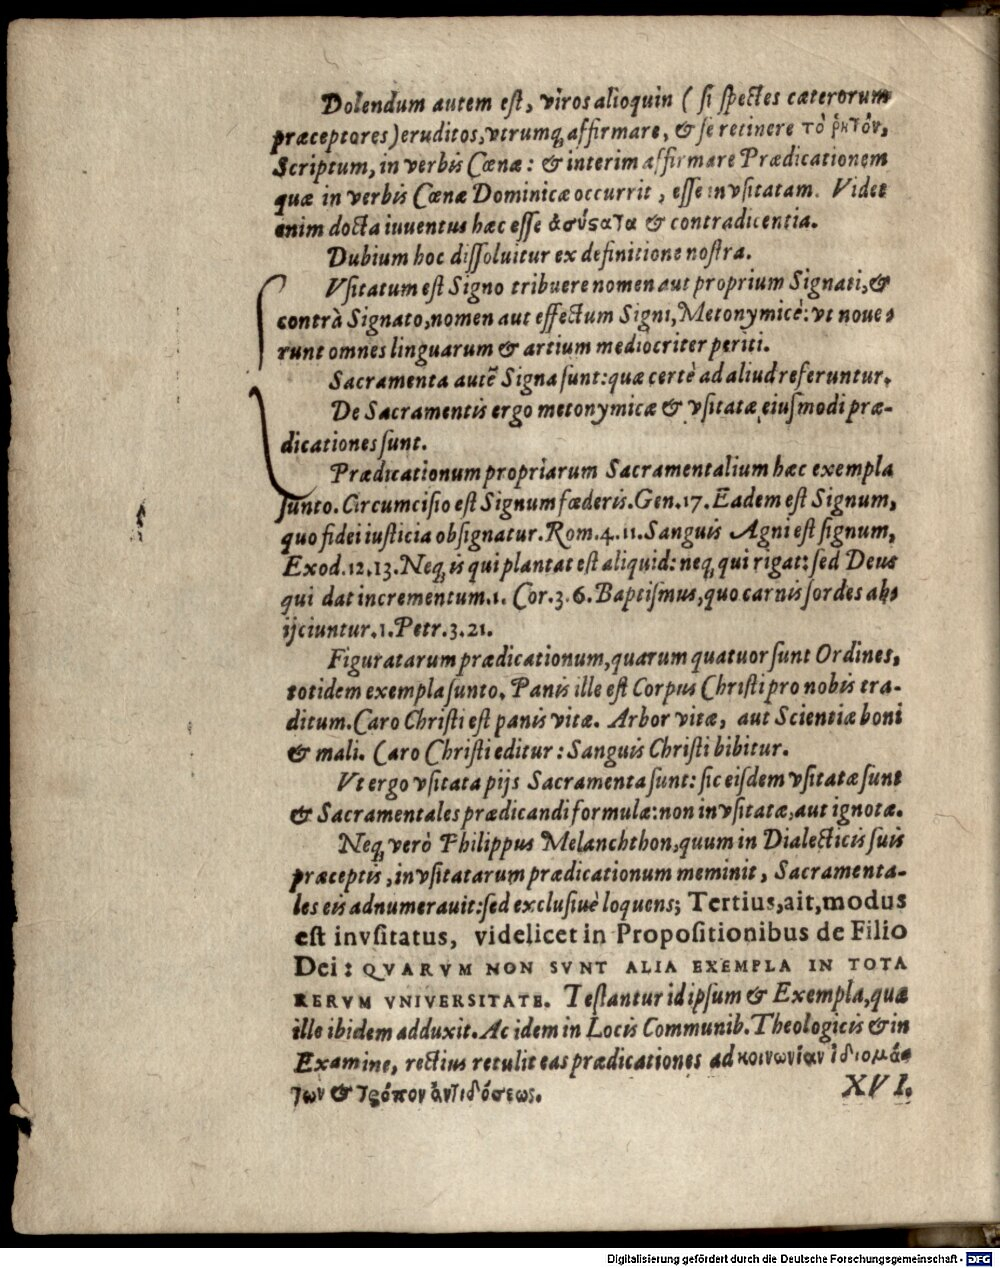 Dolendum autem est, viros alioquin ( si spectes cæterorum
præceptores) eruditos, vtrumq; affirmare, & se retinere τὸ ῥητόν,
Scriptum, in verbis Cœnæ: & interim affirmare Prædicationem
quæ in verbis Cœnæ Dominicæ occurrit, esse invsitatam. Videt
enim docta iuuentus hæc esse ἀσύϛατα & contradicentia.
Dubium hoc dissoluitur ex definitione nostra.
Vsitatum est Signo tribuere nomen aut proprium Signati, &
contrà Signato, nomen aut effectum Signi, Metonymicè: vt noue-
runt omnes linguarum & artium mediocriter periti.
Sacramenta autē Signa sunt: quæ certè ad aliud referuntur.
De Sacramentis ergo metonymicæ & vsitatæ eiusmodi præ-
dicationes sunt.
Prædicationum propriarum Sacramentalium hæc exempla
sunto. Circumcisio est Signum fœderis. Gen. 17. Eadem est Signum,
quo fidei iusticia obsignatur. Rom. 4. 11. Sanguis Agni est signum,
Exod. 12. 13. Neq; is qui plantat est aliquid: neq; qui rigat: sed Deus
qui dat incrementum. 1. Cor. 3. 6. Baptismus, quo carnis sordes ab-
ijciuntur. 1. Petr. 3. 21.
Figuratarum prædicationum, quarum quatuor sunt Ordines,
totidem exempla sunto. Panis ille est Corpus Christi pro nobis tra-
ditum. Caro Christi est panis vitæ. Arbor vitæ, aut Scientiæ boni
& mali. Caro Christi editur: Sanguis Christi bibitur.
Vt ergo vsitata pijs Sacramenta sunt: sic eisdem vsitatæ sunt
& Sacramentales prædicandi formulæ: non invsitatæ, aut ignotæ.
Neq; verò Philippus Melanchthon, quum in Dialecticis suis
præceptis, invsitatarum prædicationum meminit, Sacramenta-
les eis adnumerauit: sed exclusiuè loquens; Tertius, ait, modus
est invsitatus, videlicet in Propositionibus de Filio
Dei: QVARVM NON SVNT ALIA EXEMPLA IN TOTA
RERVM VNIVERSITATE. Testantur id ipsum & Exempla, quæ
ille ibidem adduxit. Ac idem in Locis Communib. Theologicis & in
Examine, rectius retulit eas prædicationes ad κοινωνίαν ἰδιομά-
των & τρόπον ἀντιδόσεως.
XVI.
Digitalisierung gefördert durch die Deutsche Forschungsgemeinschaft - DFG